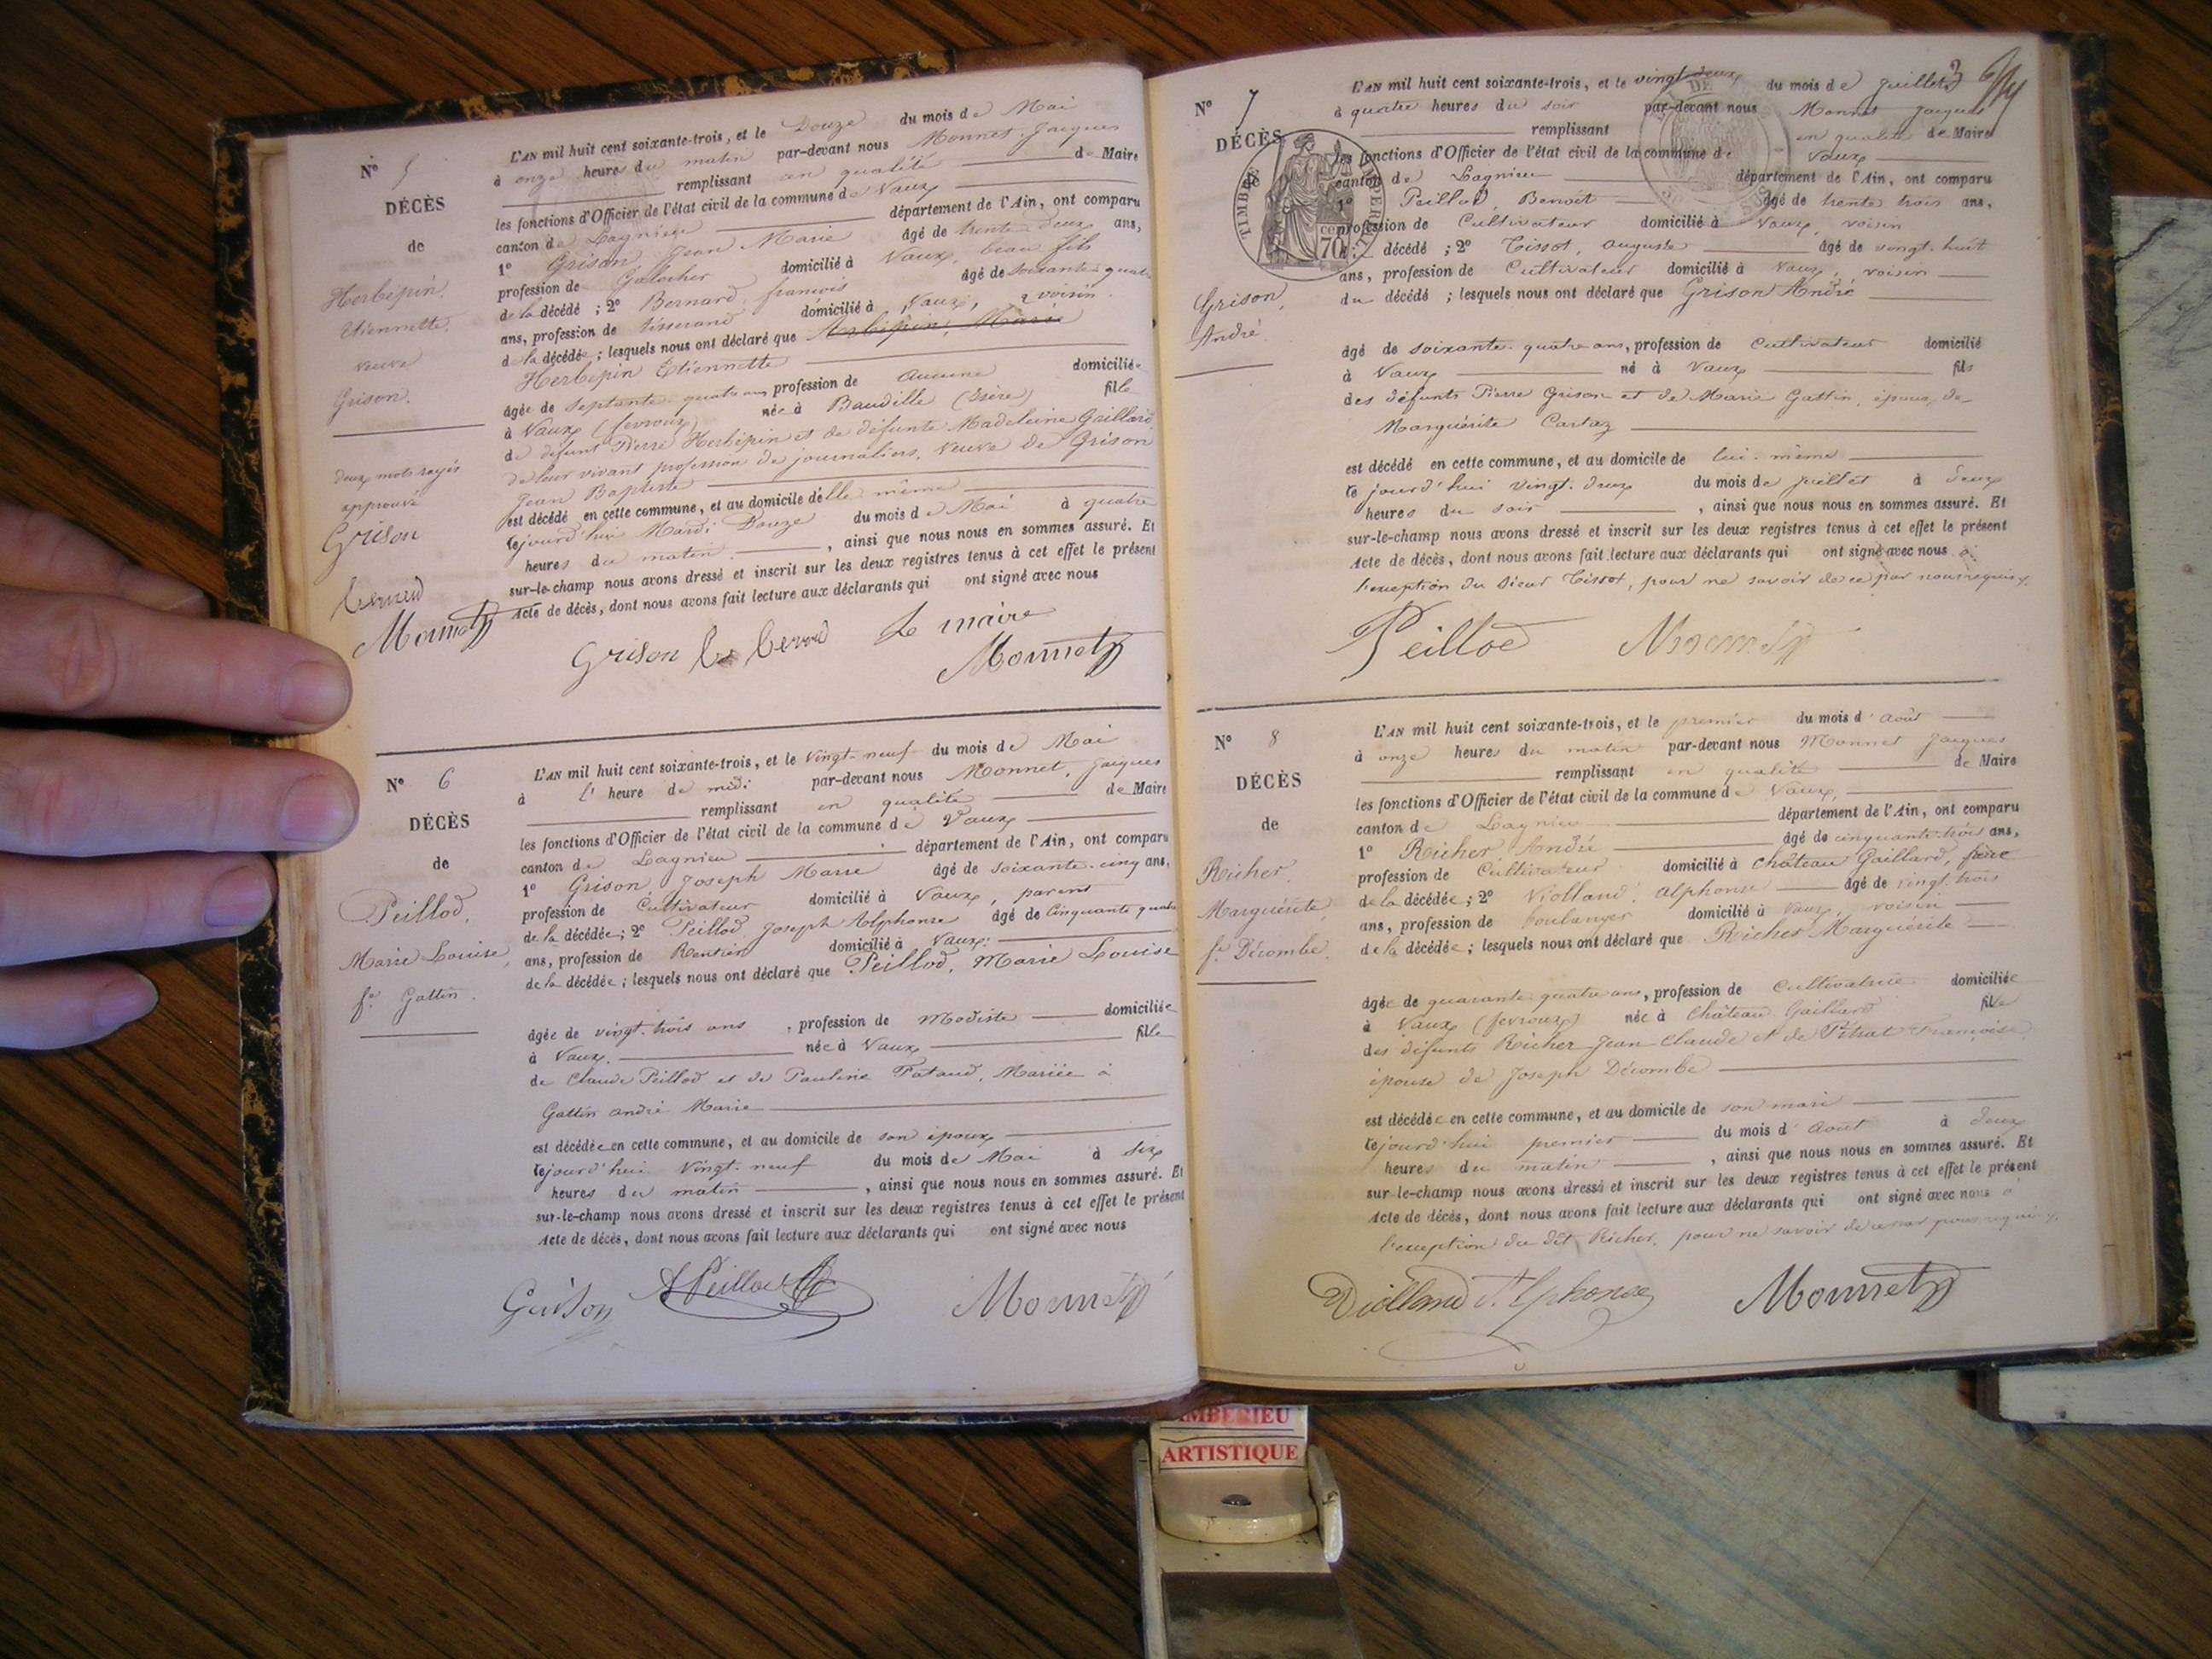 N° 5
DÉCÈS
de
Herbépin,
Etiennette,
veuve
Grison.
deux mots rayés
approuvé
Grison
Monnet
L'AN mil huit cent soixante-trois, et le Douze du mois de Mai
à onze heures du matin par-devant nous Monnet Jacques
remplissant en qualité de Maire
les fonctions d'Officier de l'état civil de la commune de Vaux
canton de Lagnieu département de l'Ain, ont comparu
1° Grison Jean Marie âgé de trente deux ans,
profession de Galocher domicilié à Vaux, beau fils
de la décédé ; 2° Bernard françois âgé de soixante quatre
ans, profession de tisserand domicilié à Vaux, voisin
de la décédée ; lesquels nous ont déclaré que
Herbépin Etiennette
âgée de septante quatre ans, profession de Aucune domiciliée
à Vaux (fevroux) née à Baudille (Isère) fille
de défunt Pierre Herbépin et de défunte Madeleine Gaillard
de leur vivant profession de journaliers, veuve de Grison
Jean Baptiste
est décédé en cette commune, et au domicile d'elle même
cejourd'hui Mardi Douze du mois de Mai à quatre
heures du matin, ainsi que nous nous en sommes assuré. Et
sur-le-champ nous avons dressé et inscrit sur les deux registres tenus à cet effet le présent
Acte de décès, dont nous avons fait lecture aux déclarants qui ont signé avec nous
Grison Le maire
Monnet
N° 6
DÉCÈS
de
Peillod,
Marie Louise,
fe Gattin.
L'AN mil huit cent soixante-trois, et le Vingt-neuf du mois de Mai
à l' heure de midi par-devant nous Monnet, Jacques
remplissant en qualité de Maire
les fonctions d'Officier de l'état civil de la commune de Vaux
canton de Lagnieu département de l'Ain, ont comparu
1° Grison Joseph Marie âgé de soixante-cinq ans,
profession de Cultivateur domicilié à Vaux, parent
de la décédée ; 2° Peillod Joseph Alphonse âgé de Cinquante quatre
ans, profession de Rentier domicilié à Vaux
de la décédée ; lesquels nous ont déclaré que Peillod, Marie Louise
âgée de vingt-trois ans, profession de Modiste domiciliée
à Vaux née à Vaux fille
de Claude Peillod et de Pauline Fataud, Mariée à
Gattin André Marie
est décédée en cette commune, et au domicile de son époux
cejourd'hui Vingt-neuf du mois de Mai à six
heures du matin, ainsi que nous nous en sommes assuré. Et
sur-le-champ nous avons dressé et inscrit sur les deux registres tenus à cet effet le présent
Acte de décès, dont nous avons fait lecture aux déclarants qui ont signé avec nous
Grison A Peillod Monnet
3
N° 7
DÉCÈS
Grison,
André.
TIMBRE IMPERIAL
70
L'AN mil huit cent soixante-trois, et le vingt-deux du mois de Juillet
à quatre heures du soir par-devant nous Monnet Jacques
remplissant en qualité de Maire
les fonctions d'Officier de l'état civil de la commune de Vaux
canton de Lagnieu département de l'Ain, ont comparu
1° Peillod, Benoît âgé de trente trois ans,
profession de Cultivateur domicilié à Vaux, voisin
décédé ; 2° Tissot, Auguste âgé de vingt-huit
ans, profession de Cultivateur domicilié à Vaux, voisin
du décédé ; lesquels nous ont déclaré que Grison André
âgé de soixante-quatre ans, profession de Cultivateur domicilié
à Vaux né à Vaux fils
des défunts Pierre Grison et de Marie Gattin, époux de
Marguérite Cartaz
est décédé en cette commune, et au domicile de lui-même
cejourd'hui Vingt-deux du mois de juillet à deux
heures du soir, ainsi que nous nous en sommes assuré. Et
sur-le-champ nous avons dressé et inscrit sur les deux registres tenus à cet effet le présent
Acte de décès, dont nous avons fait lecture aux déclarants qui ont signé avec nous à
l'exception du sieur Tissot, pour ne savoir de ce par nous requis.
Peillod Monnet
N° 8
DÉCÈS
de
Richer,
Marguérite,
fe Décombe.
L'AN mil huit cent soixante-trois, et le premier du mois d'Août
à onze heures du matin par-devant nous Monnet Jacques
remplissant en qualité de Maire
les fonctions d'Officier de l'état civil de la commune de Vaux,
canton de Lagnieu département de l'Ain, ont comparu
1° Richer André âgé de cinquante-trois ans,
profession de Cultivateur domicilié à Château Gaillard, frère
de la décédée ; 2° Violland, Alphonse âgé de vingt-trois
ans, profession de boulanger domicilié à Vaux, voisin
de la décédée ; lesquels nous ont déclaré que Richer Marguérite
âgée de quarante-quatre ans, profession de Cultivatrice domiciliée
à Vaux (fevroux) née à Château Gaillard fille
des défunts Richer Jean Claude et de Françoise
épouse de Joseph Décombe
est décédée en cette commune, et au domicile de son mari
cejourd'hui premier du mois d'Août à deux
heures du matin, ainsi que nous nous en sommes assuré. Et
sur-le-champ nous avons dressé et inscrit sur les deux registres tenus à cet effet le présent
Acte de décès, dont nous avons fait lecture aux déclarants qui ont signé avec nous à
l'exception du dit Richer, pour ne savoir de ce par nous requis.
Violland Alphonse Monnet
AMBERIEU
ARTISTIQUE